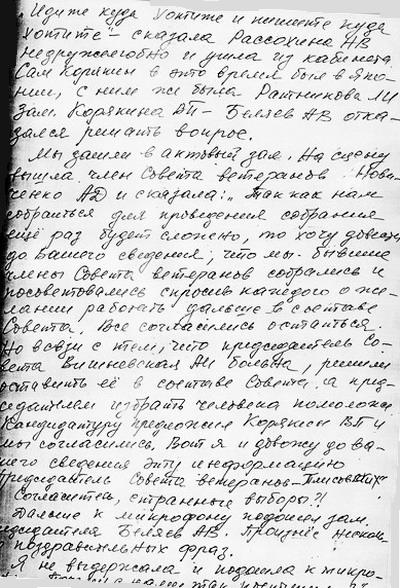 „Идите куда хотите и пишите куда
хотите" – сказала Рассохина НВ
недружелюбно и ушла из кабинета.
Сам Корякин в это время был в Япо-
нии, с ним же была Ратникова ЛИ
Зам. Корякина ВП – Беляев АВ отка-
зался решать вопрос.
Мы зашли в актовый зал. На сцену
вышла член Совета ветеранов
ченко АД и сказала: „Так как нам
собраться для проведения собрания
ещё раз будет сложно, то хочу довести
до Вашего сведения, что мы бывшие
члены Совета ветеранов собрались и
посоветовались спросив каждого о же-
лании работать дальше в составе
Совета. Все согласились остаться.
Но в связи с тем, что председатель Со-
вета Вишневская АИ больна, решили
оставить её в составе Совета, а пред-
седателем избрать человека помоложе
Кандидатуру предложил Корякин ВП и
мы согласились. Вот я и довожу до ва-
шего сведения эту информацию
Председатель Совета ветеранов –
Согласитесь, странные выборы?!
Дальше к микрофону подошел зам.
председателя Беляев АВ. Произнёс неско
поздравительных фраз.
Я не выдержала и подошла к микро-